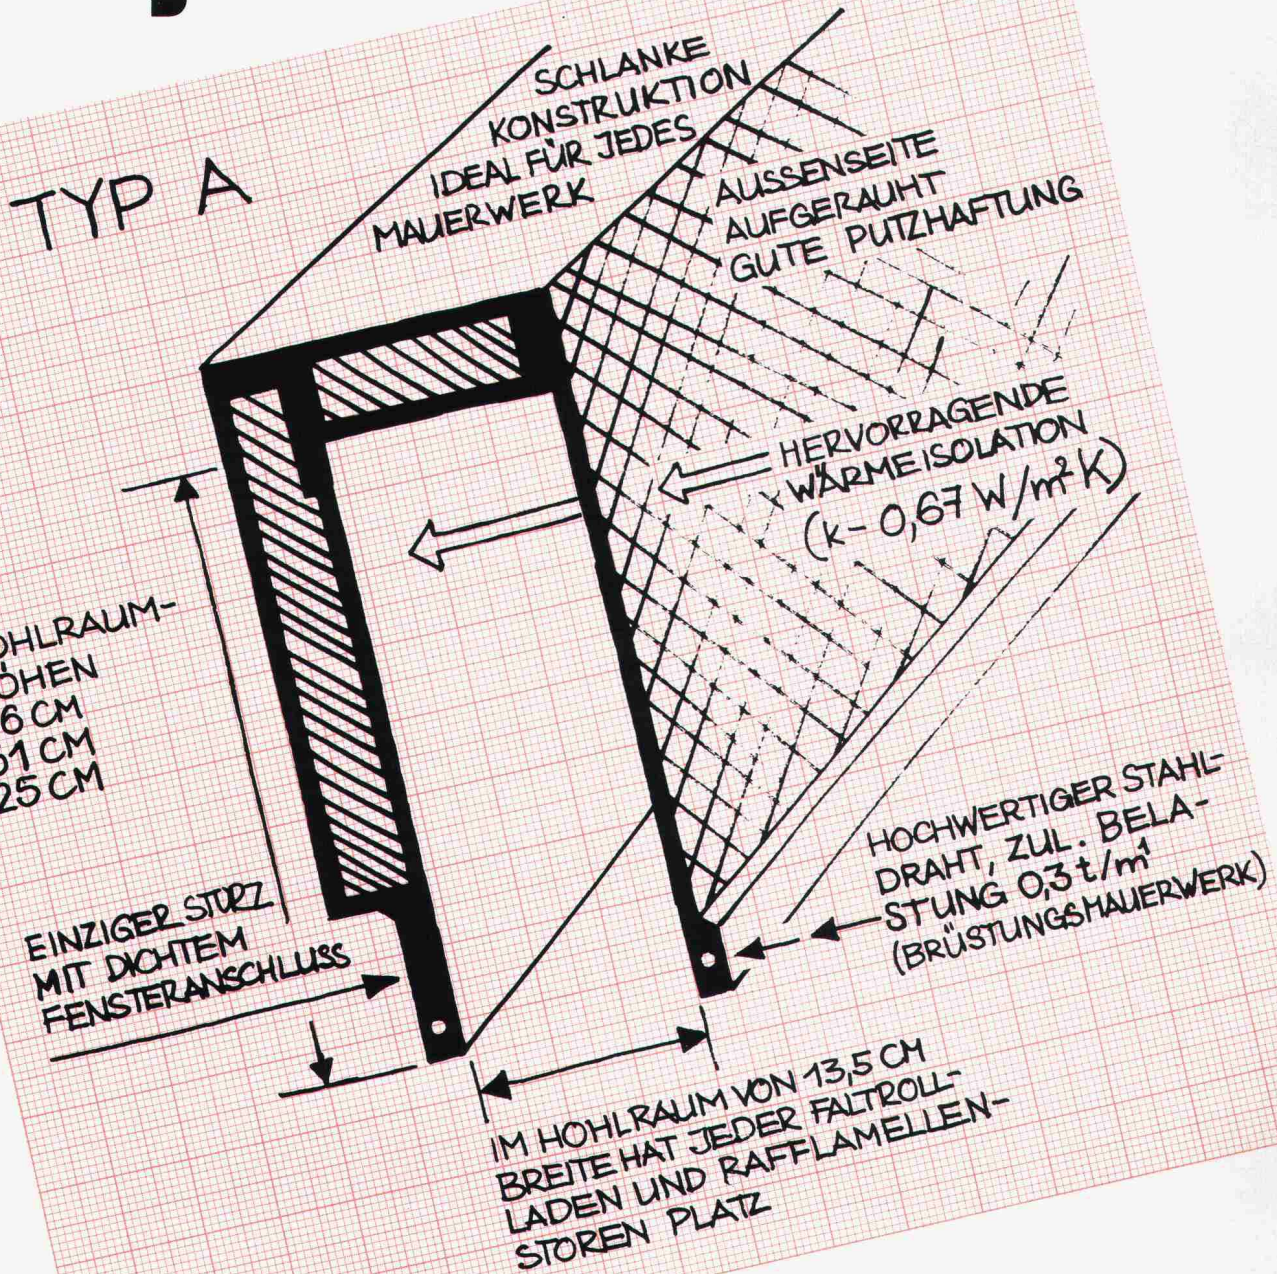 TYP A
SCHLANKE
KONSTRUKTION
IDEAL FÜR JEDES
MAUERWERK
AUSSENSEITE
AUFGERAUHT
GUTE PUTZHAFTUNG
HERVORRAGENDE
WÄRMEISOLATION
(k– 0,67 W/m²K)
OHLRAUM-
ÖHEN
6 CM
51 CM
25 CM
HOCHWERTIGER STAHL-
DRAHT, ZUL. BELA-
STUNG 0,3 t/m¹
(BRÜSTUNGSMAUERWERK)
EINZIGER STURZ
MIT DICHTEM
FENSTERANSCHLUSS
IM HOHLRAUM VON 13,5 CM
BREITE HAT JEDER FALTROLL-
LADEN UND RAFFLAMELLEN-
STOREN PLATZ